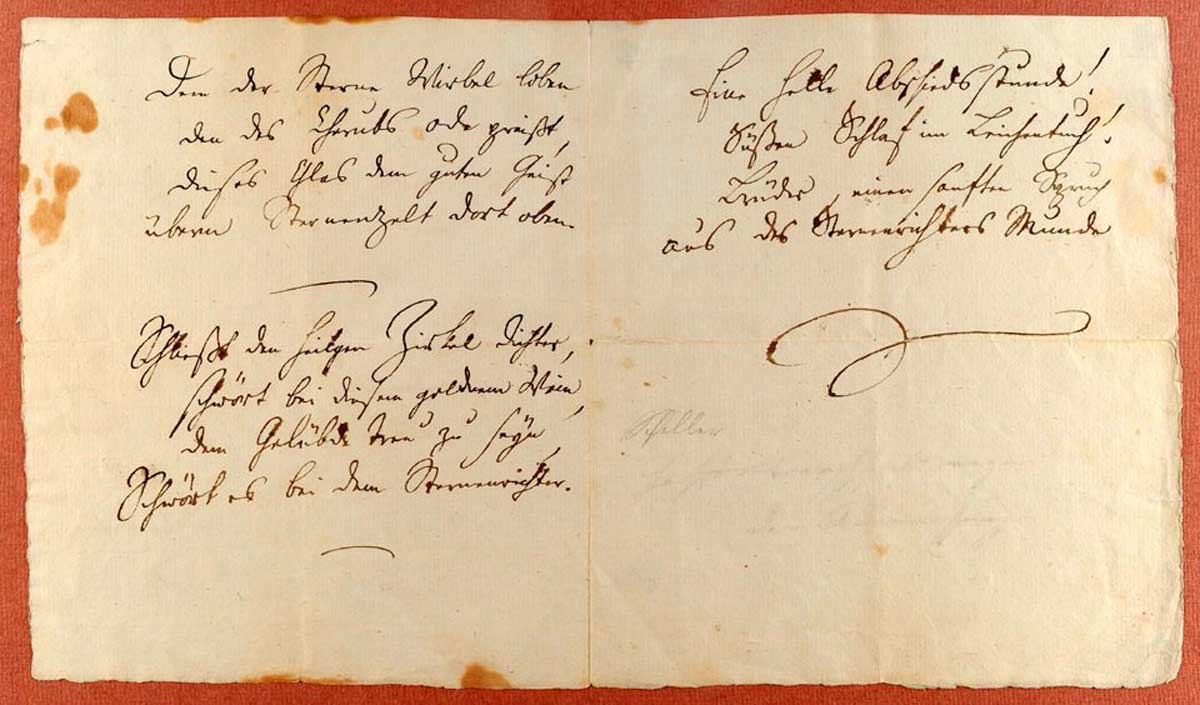 Dem der Sterne Wirbel loben
den des Cherubs ode preißt,
dieses Glas dem guten Geist
überm Sternenzelt dort oben.
Schließt den heilgen Zirkel dichter,
schwört bei diesem goldnem Wein
dem Gelübde treu zu seyn,
Schwört es bei dem Sternenrichter.
Eine helle Abschiedsstunde!
Süßen Schlaf im Leichentuch!
Brüder, einen sanften Spruch
aus des Sternenrichters Munde
Schiller